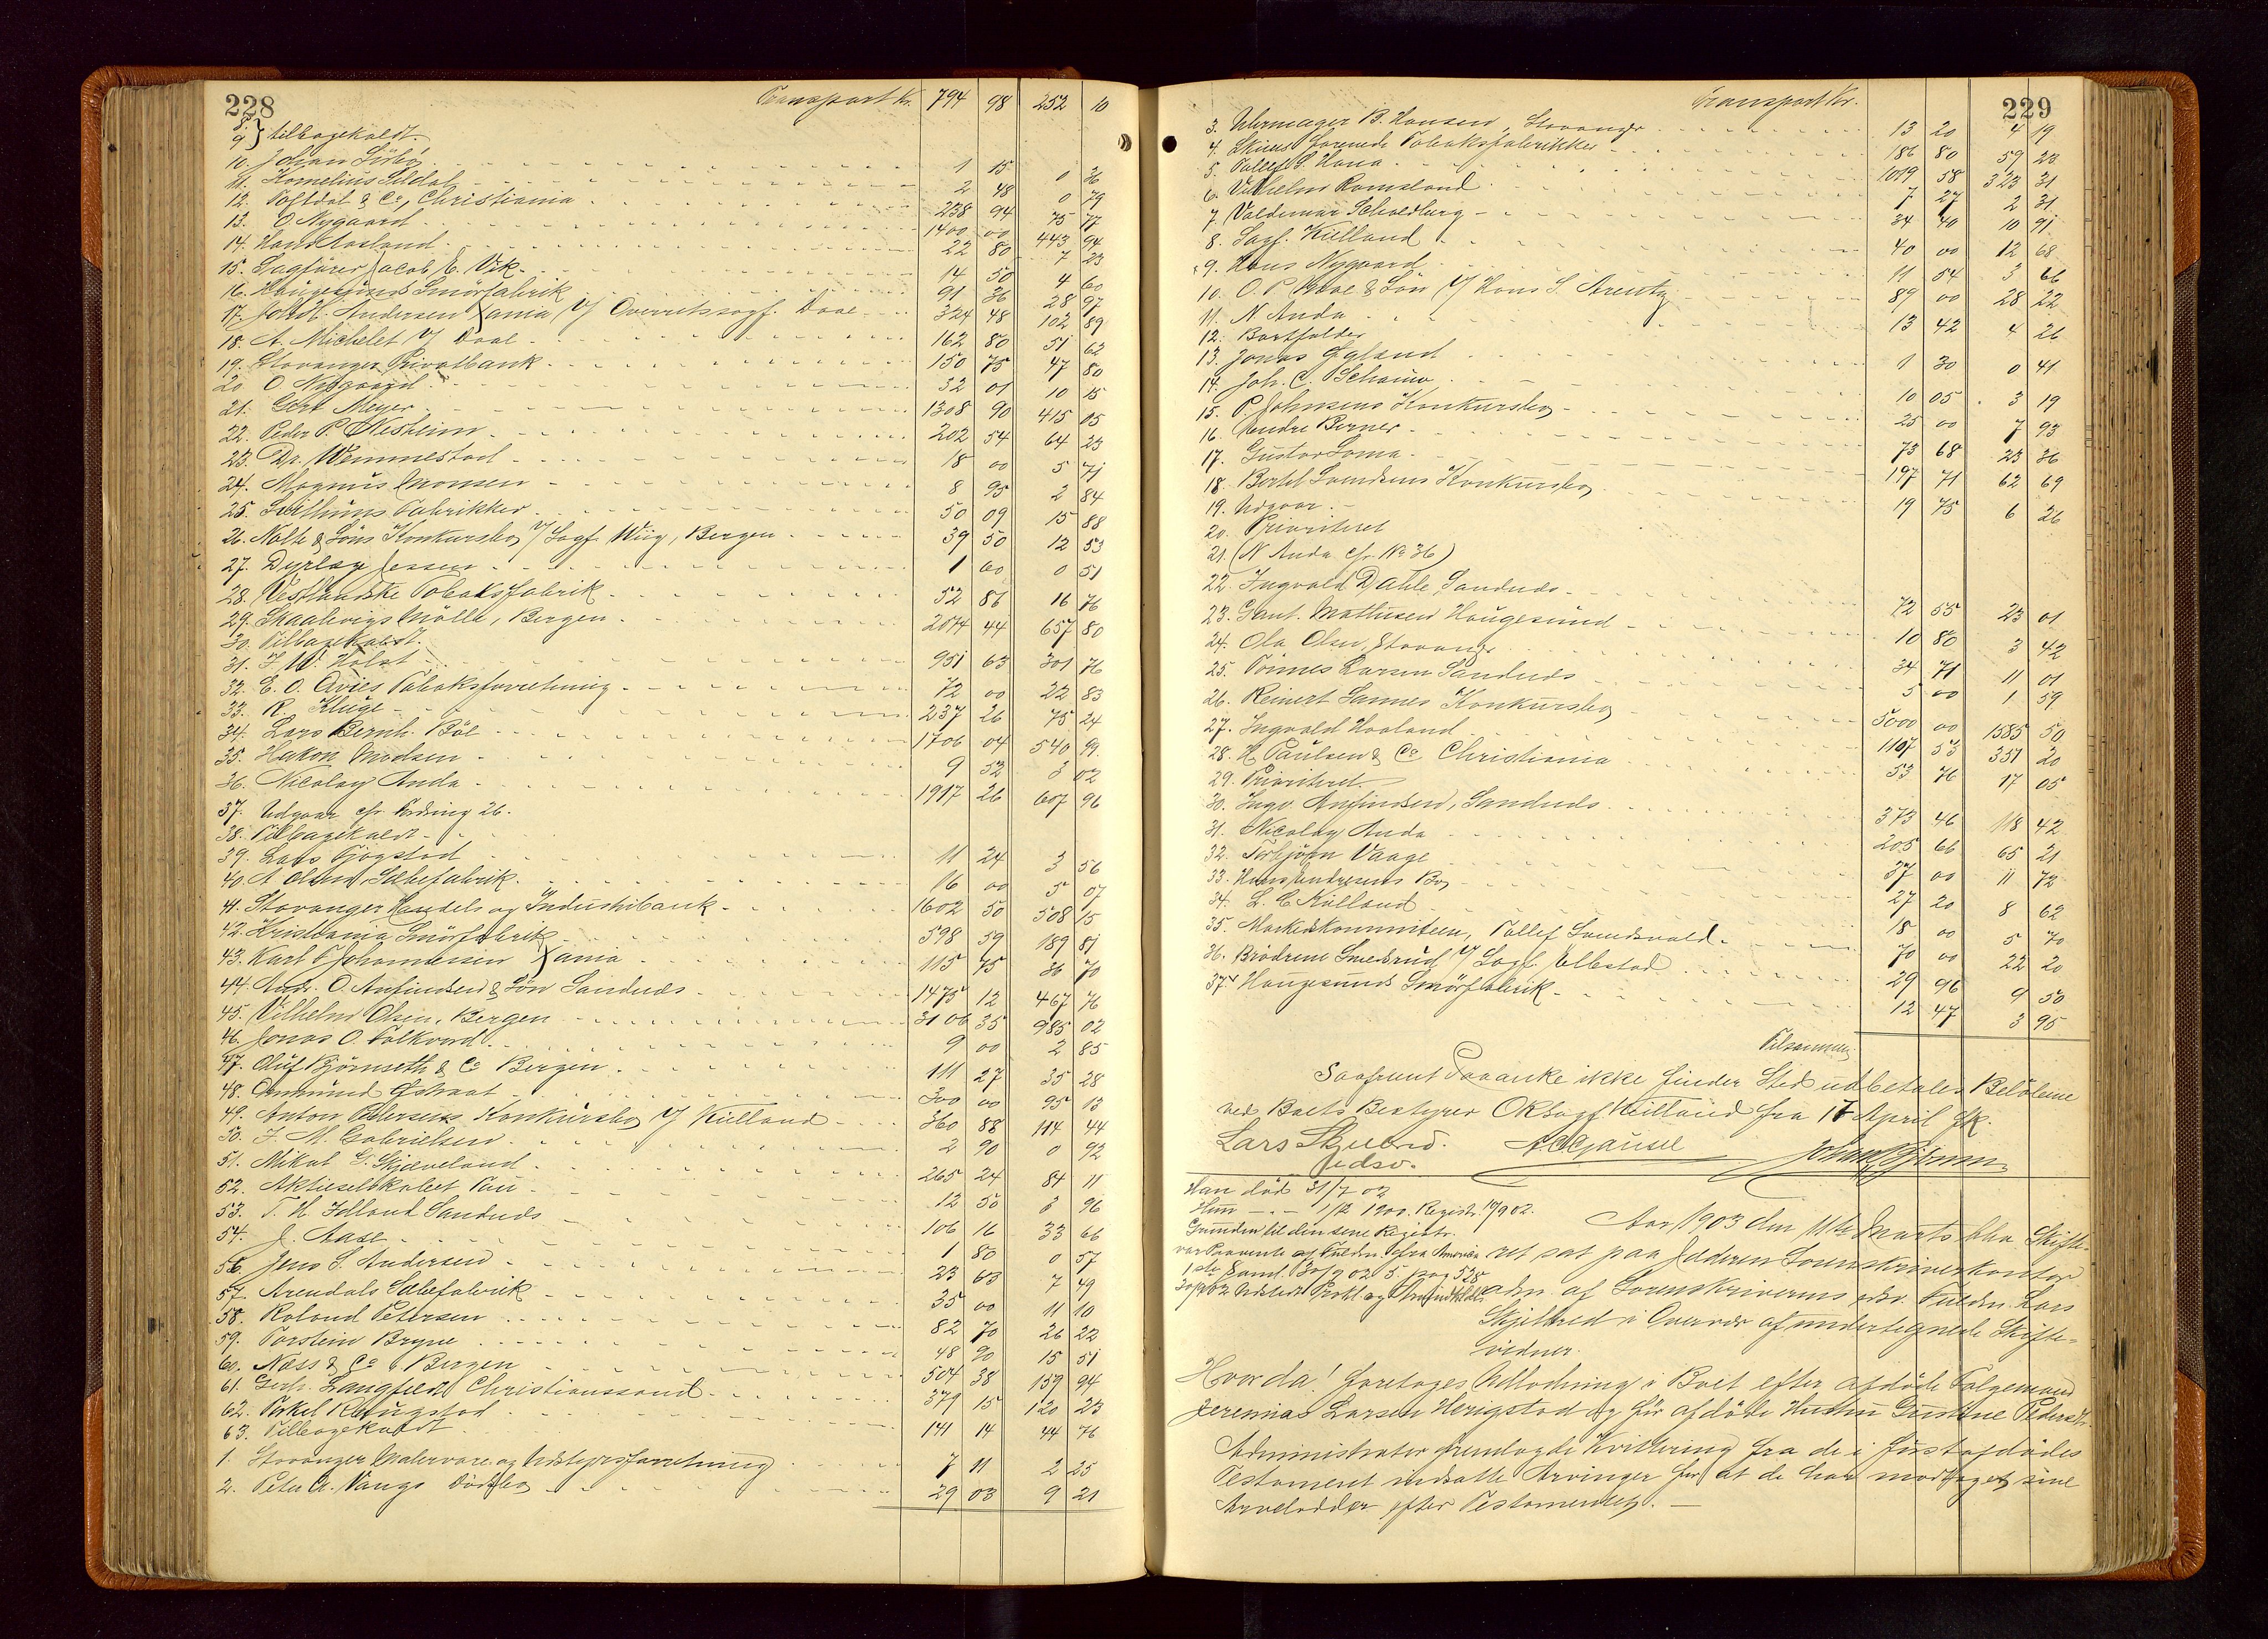 228
Transport Kr. 794 98 252 10
8. 9. } tilbagekaldt
10. Johan Sirbø 1 15 0 36
11. Kornelius Sildal 2 48 0 79
12. Toftdal & Co, Christiania 238 94 75 77
13. O Nygaard 1400 00 443 94
14. Hans Aasland 22 80 7 23
15. Sagfører Jacob E. Vik 14 50 4 60
16. Haugesunds Smörfabrik 91 36 28 97
17. Joh. H. Andersen Xania v/ Overretssagf. Daae 324 48 102 89
18. A. Michelet v/ Daae 162 80 51 62
19. Stavanger Privatbank 150 75 47 80
20. O. Nygaard 32 01 10 15
21. Gert Meyer 1308 90 415 05
22. Peder P. Nesheim 202 54 64 23
23. Dr. Wennestad 18 00 5 71
24. Magnus Monsen 8 95 2 84
25. Lillehuns Fabrikker 50 09 15 88
26. Nolte & Søns Konkursbo v/ Sagf. Wiig, Bergen 39 50 12 53
27. Dyrlæg Jessen 1 60 0 51
28. Vestlandske Tobaksfabrik 52 86 16 76
29. Skaalevigs Mölle, Bergen 2074 44 657 80
30. Tilbagekaldt.
31. J. W. Holst 951 63 301 76
32. E. O. Avies Tobaksforretning 72 00 22 83
33. R. Kluge 237 26 75 24
34. Lars Bernh. Böe 1706 04 540 99
35. Hakon Madsen 9 52 3 02
36. Nicolay Anda 1917 26 607 96
37. Udgaar cfr. Fordring 26.
38. Tilbagekaldt
39. Lars Tjøgstad 11 24 3 56
40. A. Olsens Sæbefabrik 16 00 5 07
41. Stavanger Handels og Industribank 1602 50 508 15
42. Kristiania Smörfabrik 598 59 189 81
43. Karl F Johannesen Xania 115 75 36 70
44. Andr. O. Anfindsen & Søn Sandnæs 1475 12 467 76
45. Vilhelm Olsen, Bergen 3106 35 985 02
46. Jonas O. Folkvord 9 00 2 85
47. Oluf Bjørnseth & Co Bergen 111 27 35 28
48. Aamund Gstraat 300 00 95 13
49. Anton Petersens Konkursbo v/ Kielland 360 88 114 44
50. J. M. Gabrielsen 2 90 0 92
51. Mikal G. Skjæveland 265 24 84 11
52. Aktieselskabet Pau 12 50 3 96
53. T. H. Idland Sandnæs 106 16 33 66
54. J. Aase 1 80 0 57
56. Jens S. Andersen 23 63 7 49
57. Arendals Sæbefabrik 35 00 11 10
58. Roland Petersen 82 70 26 22
59. Torstein Bryne 48 90 15 51
60. Næss & Co, Bergen 504 38 159 94
61. Gerh. Langfeldt Christianssand 379 15 120 23
62. Torkel Haugstad 141 14 44 76
63. Tilbagekaldt
1. Stavanger Malervare og Udstyrsforretning 7 11 2 25
2. Peter A. Vangs Dödsbo 29 03 9 21
229
Transport Kr.
3. Uhrmager B. Hansen, Stavanger 13 20 4 19
4. Skiens forenede Tobaksfabrikker 186 80 59 23
5. Tollef S. Hana 1019 58 323 31
6. Vilhelm Ramsland 7 27 2 31
7. Valdemar Schvedburg 34 40 10 91
8. Sagf. Kielland 40 00 12 68
9. Hans Nygaard 11 54 3 66
10. O. P. Moe & Søn v/ Hans S. Arentz 89 00 28 22
11. N. Anda 13 42 4 26
12. Bortfalder
13. Jonas Øgland 1 30 0 41
14. Joh. C. Schanio 10 05 3 19
15. P. Johnsens Konkursbo 25 00 7 93
16. Andre Berner 73 68 23 36
17. Gustav Soma 197 71 62 69
18. Bertel Svendsens Konkursbo 19 75 6 26
19. Udgaar.
20. Prioriteret
21. (N. Anda cfr. No 36)
22. Ingvald Dahle, Sandnæs 72 55 23 01
23. Gant. Mathiesen Haugesund 10 80 3 42
24. Ola Olsen Stavanger 34 71 11 01
25. Tönnes Larsen Sandnæs 5 00 1 59
26. Reinert Sannes Konkursbo 5000 00 1585 50
27. Ingvald Haaland 1107 53 351 20
28. H. Paulsen & Co Christiania 53 76 17 05
29. Prioriteret.
30. Ingv. Anfindsen, Sandnæs 373 46 118 42
31. Nicolay Anda 205 66 65 21
32. Torbjørn Vaage 37 00 11 72
33. Hans Andresens Bo 27 20 8 62
34. L. C. Kielland 18 00 5 70
35. Markedskommiteen, Tollef Sandvold 70 00 22 20
36. Brödrene Smedsrud v/ Sagf. Ellestad 29 96 9 50
37. Haugesunds Smörfabrik 12 47 3 95
Tilsammen
Saafremt Paaanke ikke finder Sted udbetales Belöbene
ved Boets Bestyrer ORsagf Kielland fra 17 April fk.
Lars Skjelbred. A C Gausel Johan Bjørnsen
edsv.
Han död 31/7 02
Hun - - 1/12 1900. Registr. 19/9 02.
Grunden til den sene Registr.
var Paavente af Fuldm. fra Amerika
1ste Saml. 30/9 02 5. pag 528
30/9 02 Udstedt Prokl.
Aar 1903 den 11te Marts blev Skifte-
ret sat paa Jæderens Sorenskriverkontor
adm. af Sorenskriverens edsv. Fuldm. Lars
Skjelbred i Overvær af undertegnede Skifte-
vidner.
Hvorda! foretoges Udlodning i Boet efter afdöde Folgemand
Jeremias Larsen Herigstad og för afdöde Hustru Gustine Pedersdtr.
Administrator fremlagde Kvittering fra de i förstafdödes
Testament indsatte Arvinger for at de har modtaget sine
Arvelodder efter Testamentet. —